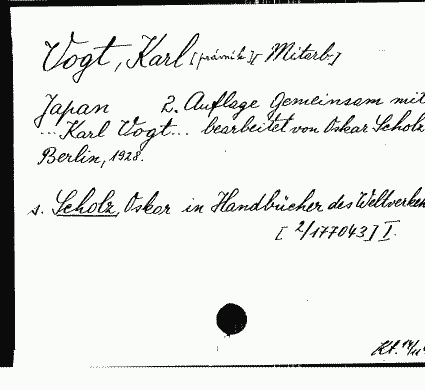 Vogt, Karl [právník] [Mitarb.]
Japan 2. Auflage Gemeinsam mit
... Karl Vogt ... bearbeitet von Oskar Scholz
Berlin, 1928.
s. Scholz, Oskar in Handbücher des Weltverkeh
[2/177043] I.
Kt.